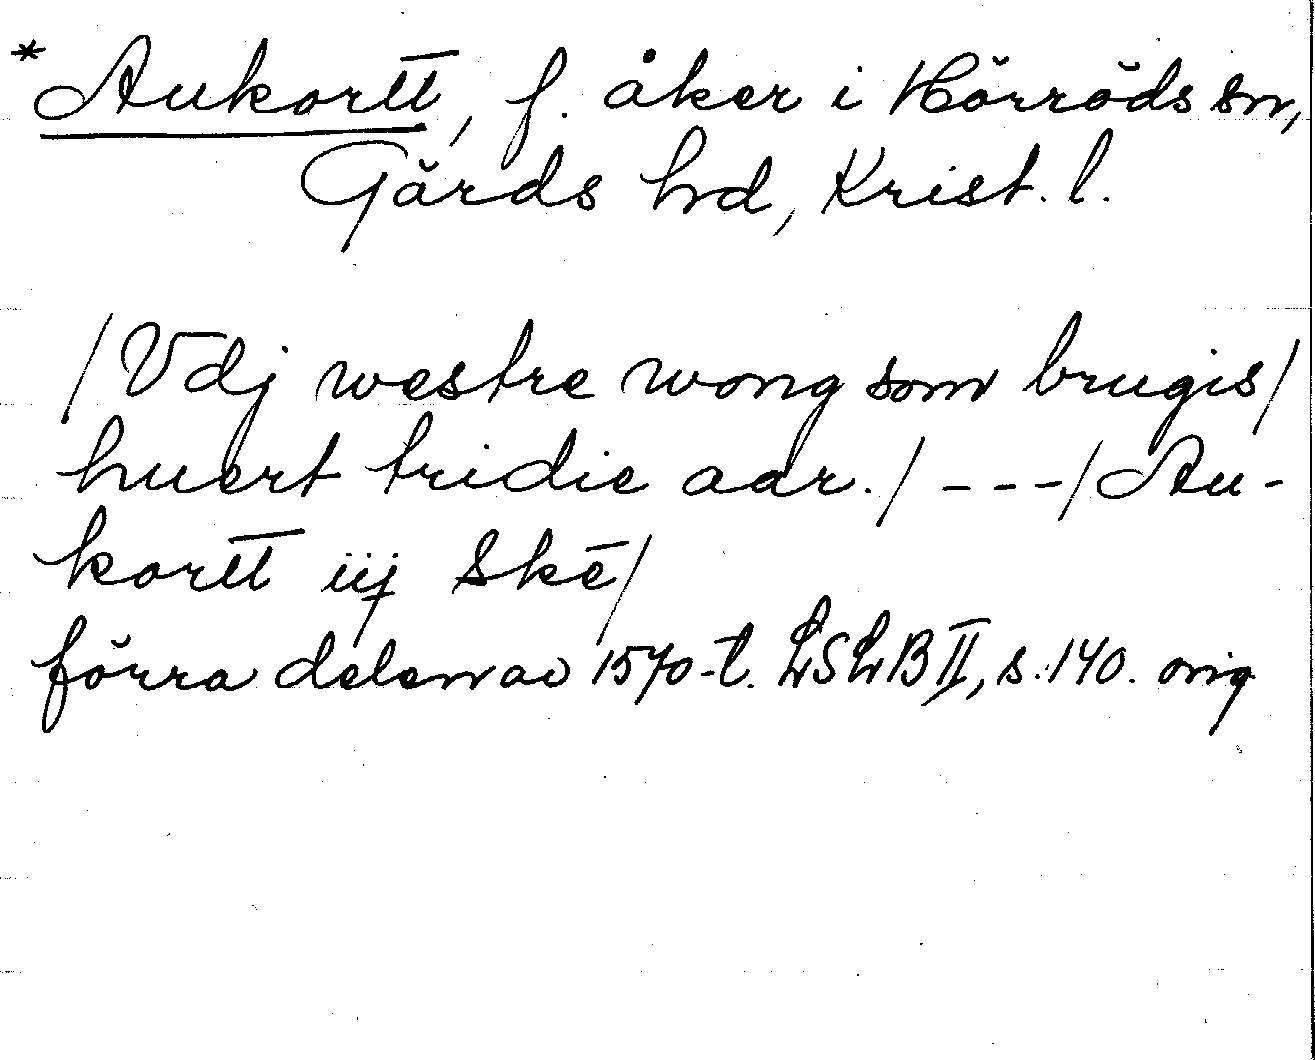 *Aukortt, f. åker i Hörröds sn,
Gärds hd, Krist. l.
/Vdj westre wong som brugis/
huert tridie aar./ ---/ Au-
kortt iij Skē/
förra delen av 1570-t. LSLB II, s. 140. orig